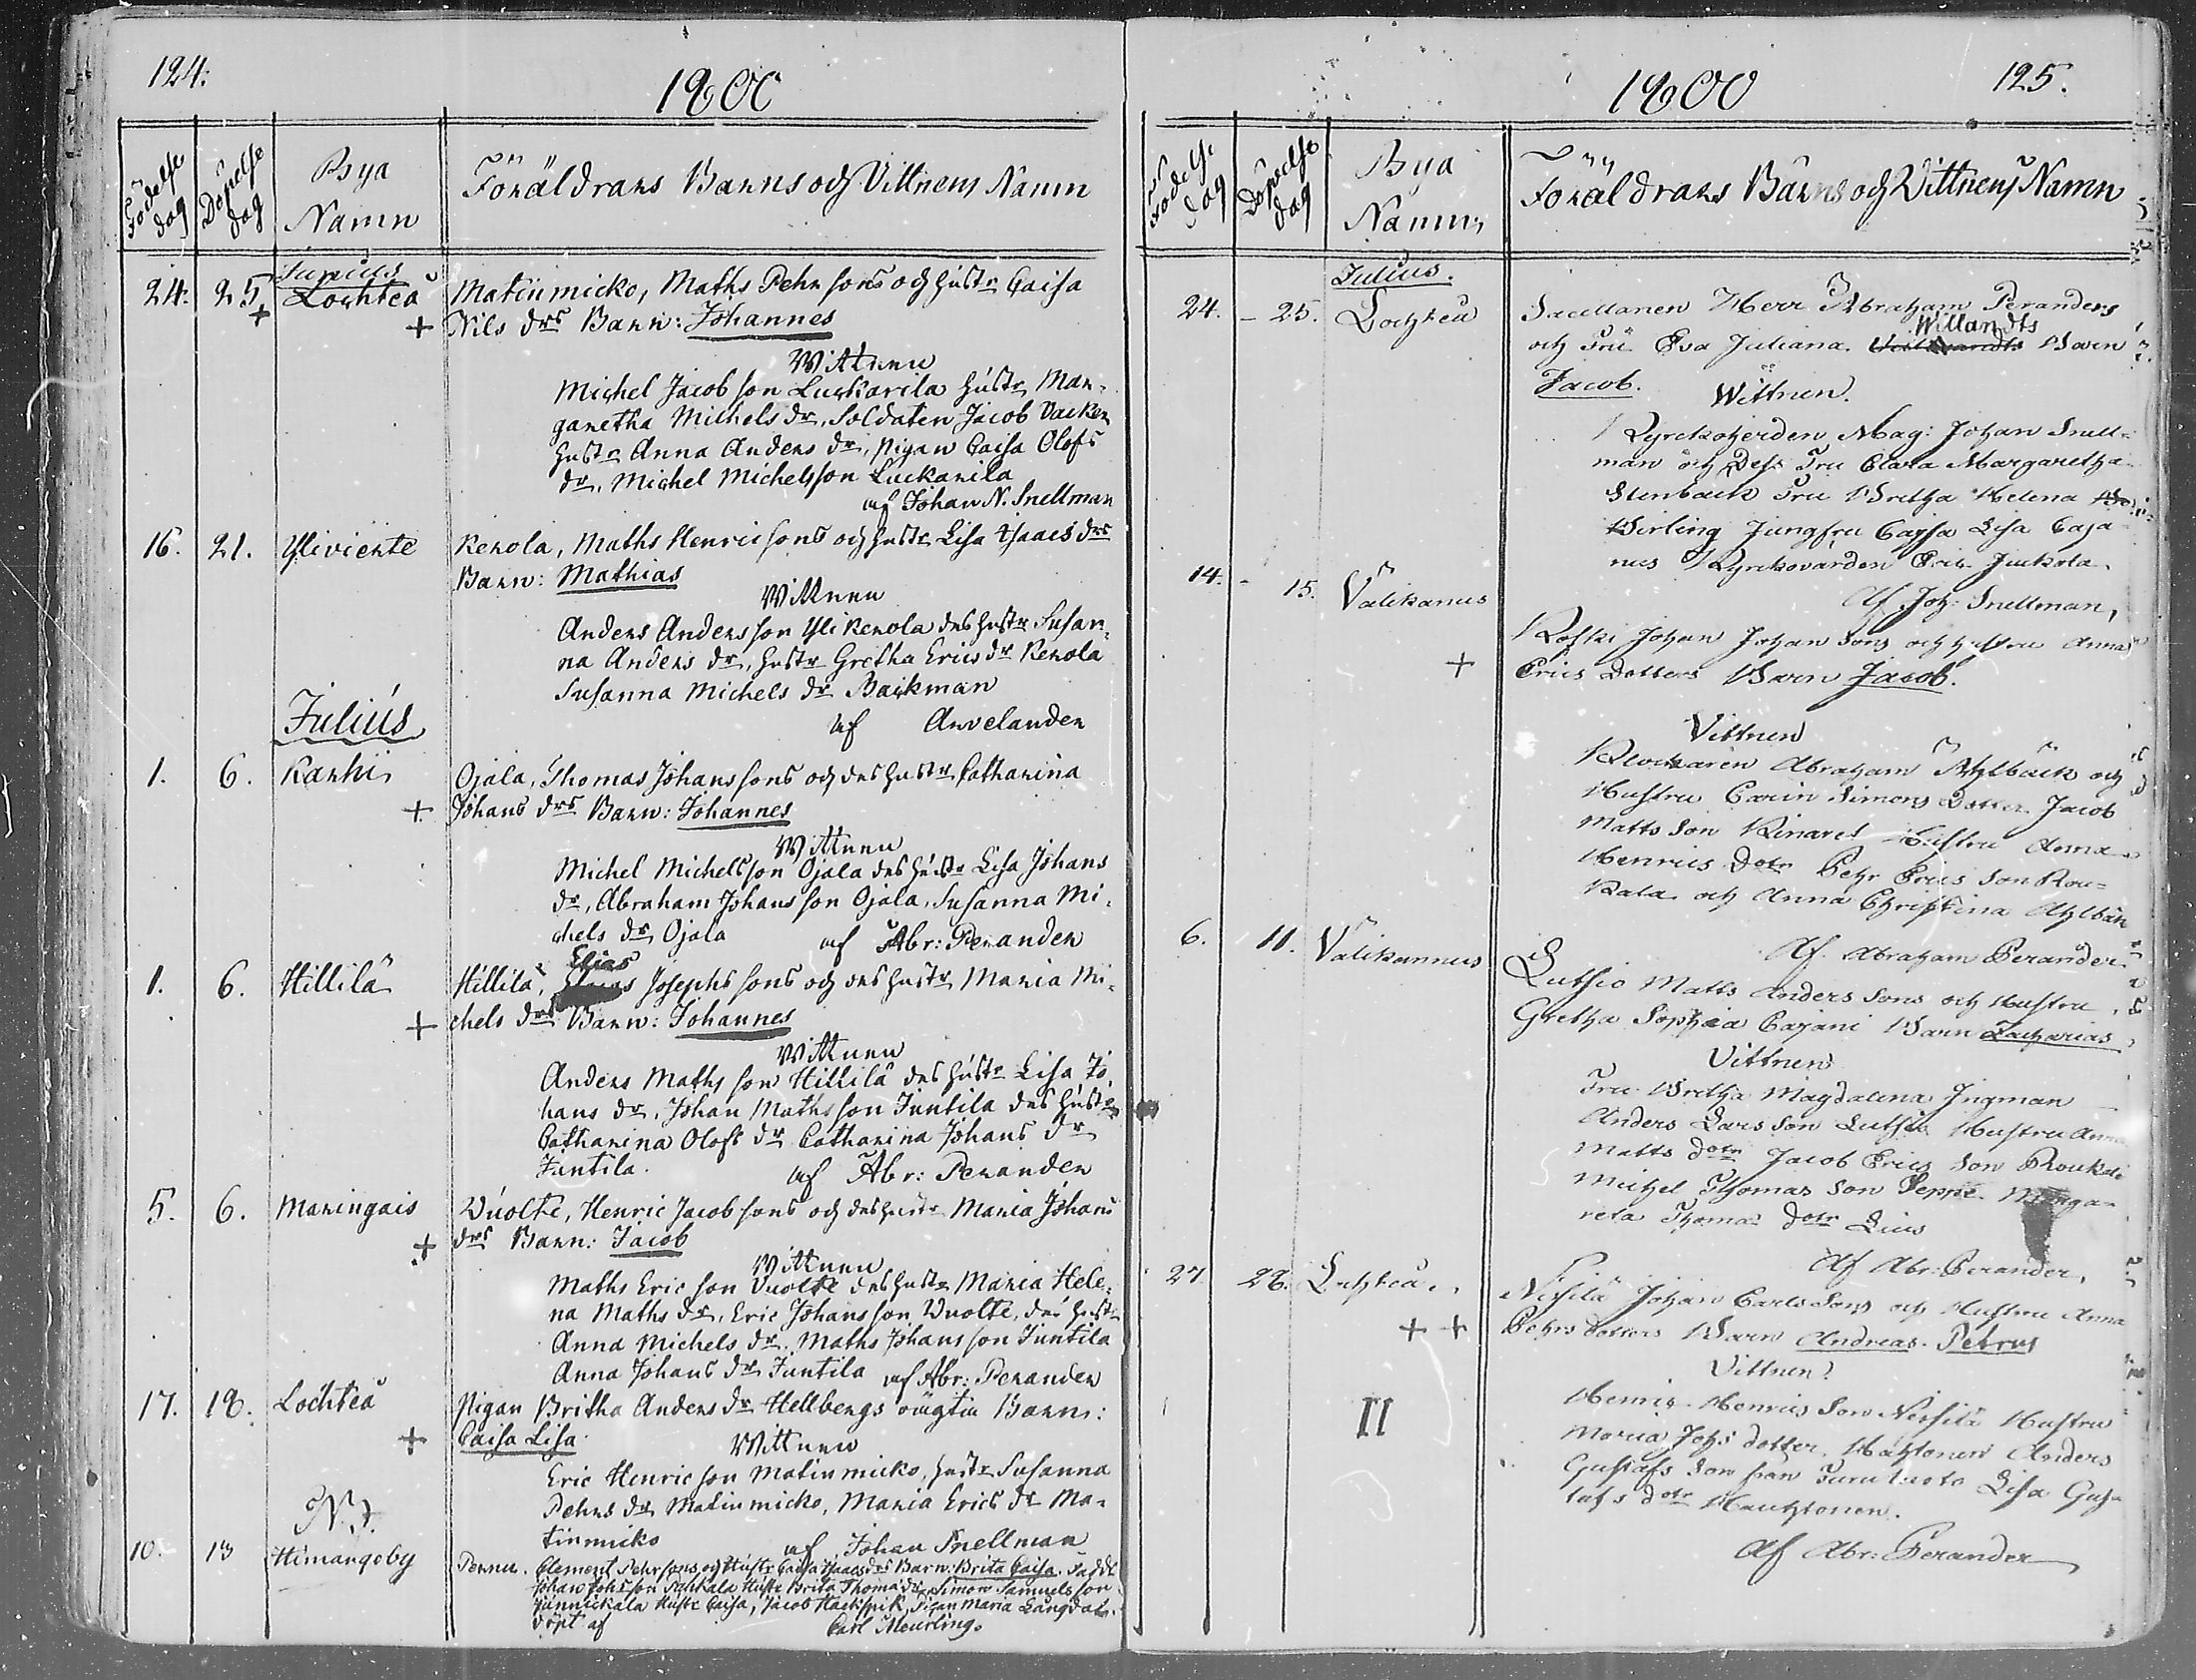 124.
1800
Födelse dag
Döpelse dag
Bya Namn
Föräldrars Barns och Vittnens Namn
Junius
24. 25 Lochteå Matinmicko, Maths Pehrsons och hustr Caisa
+ + Nils drs Barn: Johannes
Wittnen
Michel Jacobson Luckarila hustr Mar-
garetha Michels dr, Soldaten Jacob Vacker
hustr Anna Anders dr, pigan Caisa Olofs
dr, Michel Michelsson Luckarila
af Johan N. Snellman
16. 21. Yliviekte Rekola, Maths Henricsons och hustr Lisa Isaacs drs
Barn: Mathias
Wittnen
Anders Andersson Yli Rekola des hustr Susan-
na Anders dr, hustr Gretha Erics dr Rekola
Susanna Michels dr Backman
af Arvelander
Julius
1. 6. Karhi Ojala, Thomas Johanssons och des hustr Catharina
+ Johans drs Barn: Johannes
Wittnen
Michel Michelsson Ojala des hustr Lisa Johans
dr, Abraham Johansson Ojala, Susanna Mi-
chels dr Ojala af Abr: Peranden
Elias
1. 6. Hillilä Hillilä, Josephssons och des hustr Maria Mi-
+ chels drs Barn: Johannes
Wittnen
Anders Mathsson Hillilä des hustr Lisa Jo-
hans dr, Johan Mathsson Juntila des hustr
Catharina Olofs dr Catharina Johans dr
Juntila. af Abr: Perander
5. 6. Maringais Wuolte, Henric Jacobsons och des hustr Maria Johans
+ drs Barn: Jacob
Wittnen
Maths Ericson Vuolte des hustr Maria Hele-
na Maths dr, Eric Johansson Wuolte, des hustr
Anna Michels dr, Maths Johansson Juntila
Anna Johans dr Juntila af Abr: Perander
17. 18. Lochteå Pigan Britha Anders dr Hellbergs oägtia Barn:
+ Caisa Lisa
Wittnen
Eric Henricson Matinmicko, hustr Susanna
Pehrs dr Matinmicko, Maria Erics dr Ma-
tinmicko af Johan Snellman
N.
10. 13 Himangoby Pernu. Clement Pehrsons och Hustr Caisa Isaacs drs Barn: Brita Caisa.
Johan Johsson Hustr Brita Thomæ dr, Simon Samuelsson
Junnickala Hustr Caisa, Jacob Hackspik, Pigan Maria Långdal.
döpt af Carl Meurling.
1800
125.
Födelse dag
Döpelse dag
Bya Namn
Föräldrars Barns och Vittnens Namn
Julius.
24. - 25. Lochteå Sacellanen Herr Abraham Peranders
Willandts
och Fru Eva Juliana. Barn
Jacob. Wittnen.
Kyrckoherden Mag: Johan Snell-
man och Dess Fru Clara Margaretha
Stenbäck Fru Bretha Helena
Birling Jungfru Cajsa Lisa Caja-
nus Kyrckovärden Eric Juckola
Af Joh: Snellman,
14. - 15. Välikanus Koski Johan Johansons och hustru Annas
+ Erics Dotters Barn Jacob.
Vittnen
Klockaren Abraham Ahlbäck och
Hustru Carin Simons Dotter Jacob
Mattsson Kinares Hustru Anna
Henrics Dotr Pehr Ericsson Rou-
kala och Anna Christina Ahlbäk
Af Abraham Perander.
6. 11. Välikannus Luthio Matts Andersons och Hustru
Gretha Sophia Cajani Barn Zacharias
Vittnen
Fru Bretha Magdalena Ingman
Anders Larsson Luthio Hustru Anna
Matts dotr Jacob Ericsson Roukala
Michel Thomasson Peppe. Marga-
reta Thomas dotr Lius
Af Abr: Perander,
27 28. Lochteå Nisilä Johan Carlssons och Hustru Anna
+ + Pehrs dotters Barn Andreas. Petrus
Vittnen
II Henric Henricsson Nisilä Hustru
Maria Johs dotter. Anders
Gustafsson från Lisa Gus-
tafs dotr
Af Abr: Perander